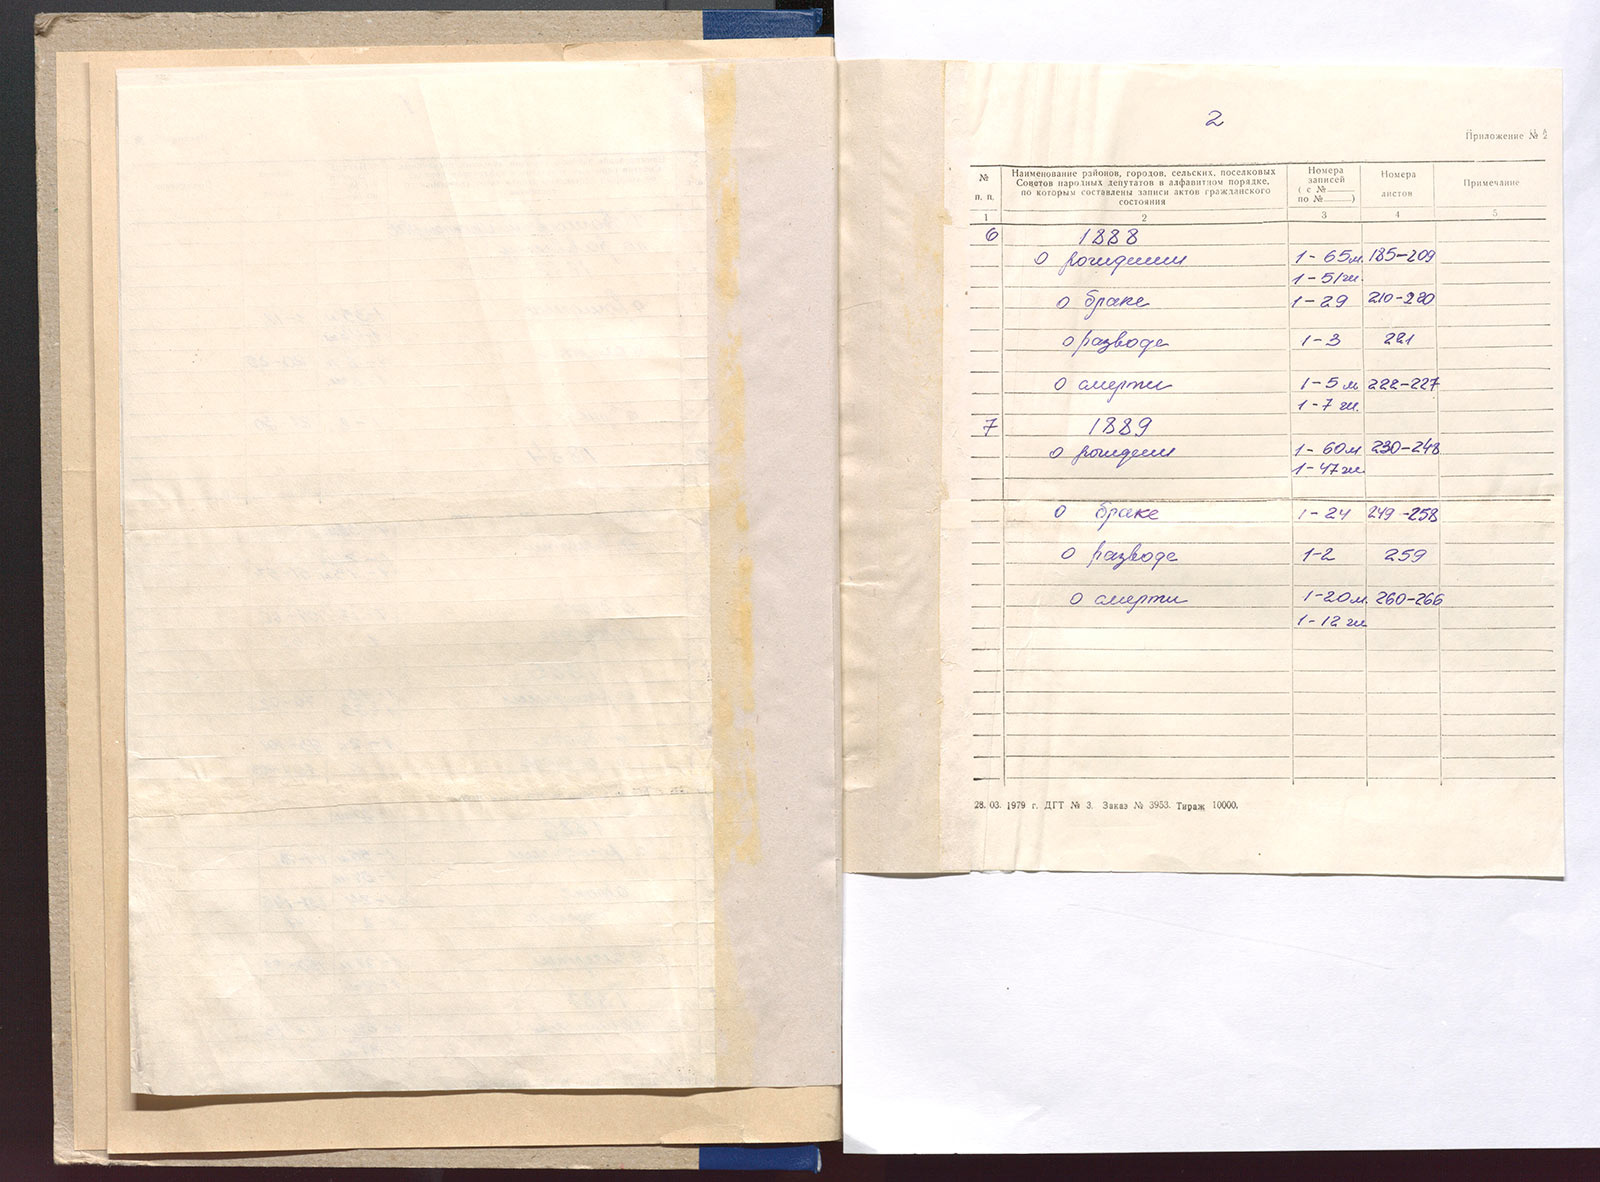 2
Приложение № 2
№ п. п.
Наименование районов, городов, сельских, поселковых
Советов народных депутатов в алфавитном порядке,
по которым составлены записи актов гражданского
состояния
Номера
записей
( с №
по № )
Номера
листов
Примечание
1 2 3 4 5
6 1888
о рождении 1-65м. 185-209
1-51ж.
о браке 1-29 210-220
о разводе 1-3 221
о смерти 1-5 м 222-227
1-7 ж.
7 1889
о рождении 1-60м 230-248
1-47ж.
о браке 1-24 249-258
о разводе 1-2 259
о смерти 1-20м. 260-266
1-12 ж
28. 03. 1979 г. ДГТ № 3. Заказ № 3953. Тираж 10000.